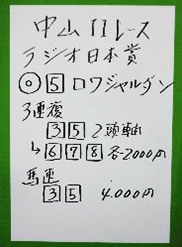 中山11レース
ラジオ日本賞
◎ 5 ロワジャルダン
3連複
3 5 2頭軸
↳ 6 7 8 各-2000円
馬連
3 5 4.000円